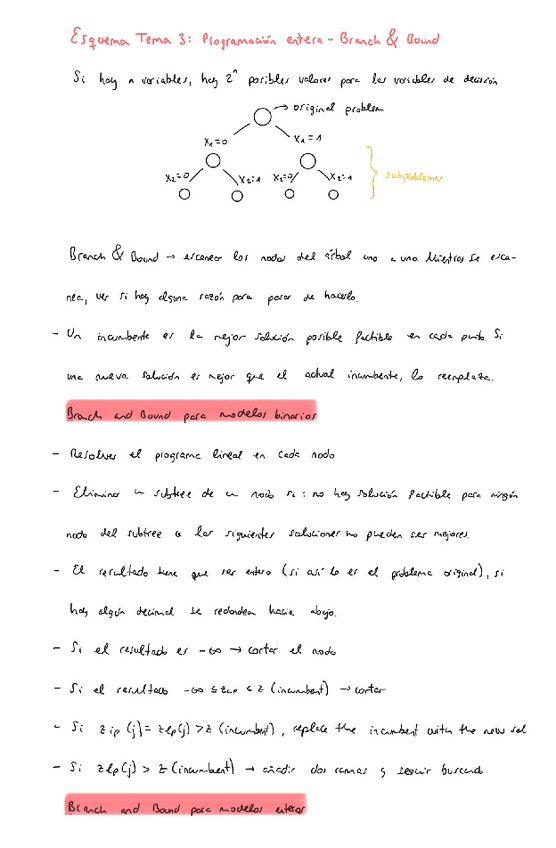 Esquema Tema 3: Programación entera - Branch & Bound
Si hay n variables, hay 2^n posibles valores para las variables de decisión
→ original problem
x₁=0 x₁=1
x₂=0 x₂=1 x₂=0 x₂=1
subproblemas
Branch & Bound → escanear los nodos del árbol uno a uno. Mientras se esca-
nea, ver si hay alguna razón para parar de hacerlo.
- Un incumbente es la mejor solución posible factible en cada punto. Si
una nueva solución es mejor que el actual incumbente, lo reemplaza.
Branch and Bound para modelos binarios
- Resolver el programa lineal en cada nodo
- Eliminar un subtree de un nodo si: no hay solución factible para ningún
nodo del subtree o las siguientes soluciones no pueden ser mejores.
- El resultado tiene que ser entero (si así lo es el problema original), si
hay algún decimal se redondea hacia abajo.
- Si el resultado es -∞ → cortar el nodo
- Si el resultado -∞ ≤ zLP ≤ z (incumbent) → cortar
- Si zip(j) = zlp(j) > z (incumbent), replace the incumbent with the new sol
- Si zlp(j) > z (incumbent) → añadir dos ramas y seguir buscando
Branch and Bound para modelos enteros